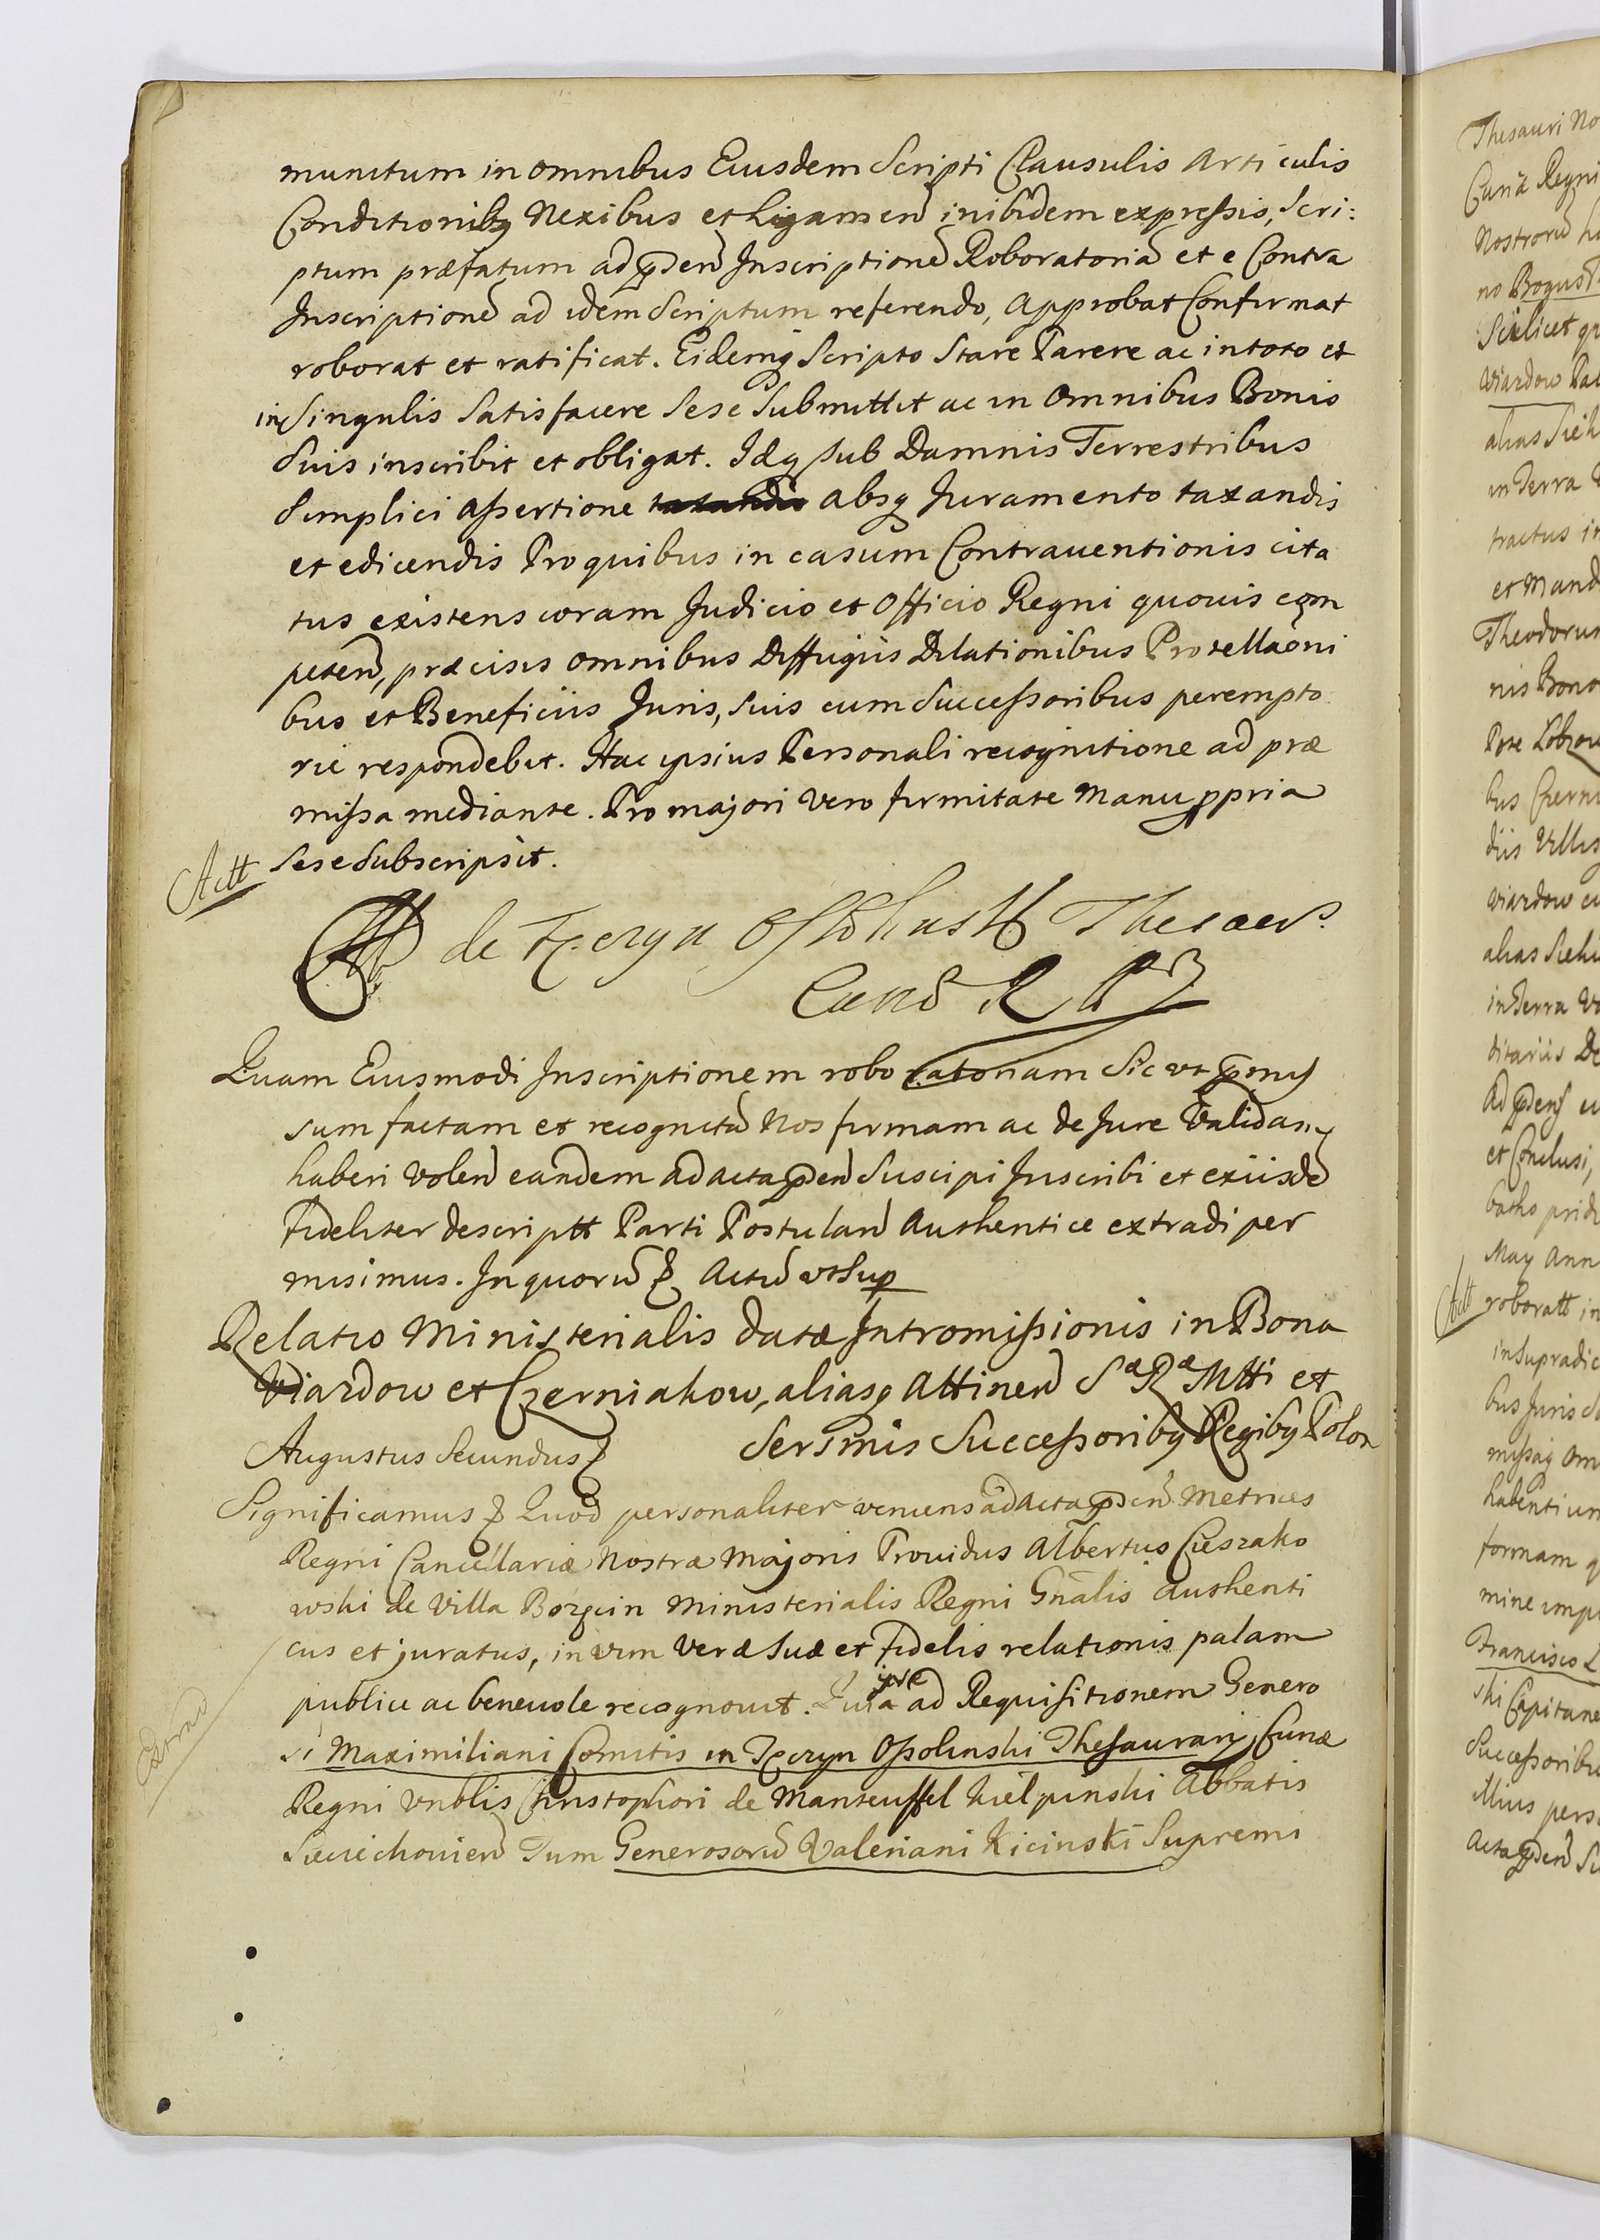 munitum in omnibus Eiusdem Scripti Clausulis Articulis
Conditionibq Nexibus et Ligamen inibidem expressis, Scri:
ptum præfatum ad p̄den Inscriptione Roboratoria et e Contra
Inscriptione ad idem Scriptum referendo, approbat Confirmat
roborat et ratificat. Eidemq Scripto Stare Parere ac in toto et
in Singulis Satisfacere Sese Submittit ac in Omnibus Bonis
Suis inscribit et obligat. Idq sub Damnis Terrestribus
Simplici assertione taxandis absq Juramento taxandis
et edicendis Pro quibus in casum Contrauentionis cita
tus existens coram Judicio et Officio Regni quouis com
peten, præcisis omnibus Diffugiis Dilationibus Protellaoni
bus et Beneficiis Juris, Suis cum Successoribus perempto
rie respondebit. Hac ipsius Personali recognitione ad præ
missa mediante. Pro majori vero firmitate manu ppria
Sese Subscripsit.
Actt
de Tęczyn Ossolinski Thesaur.
Cur R P
Quam Eiusmodi Inscriptionem roboratoriam Sic ut p̄mis
sum factam et recognita Nos firmam ac de Jure Validam
haberi volen eandem ad acta p̄den Suscipi Inscribi et exiisde
Fideliter descriptt Parti Postulan Authentice extradi per
misimus. In quoru & Actu ut Sup
Relatio Ministerialis datæ Intromissionis in Bona
Viardow et Czerniakow, aliasq Attinen Sæ Ræ Mtti et
Sersmis Successoribq Regibq Polon
Augustus Secundus &
Significamus & Quod personaliter veniens ad acta p̄den Metrices
Regni Cancellariæ Nostræ Majoris Prouidus Albertus Cieszako
wski de Villa Borzęcin Ministerialis Regni Gnalis authenti
cus et juratus, in vim veræ suæ et fidelis relationis palam
publice ac beneuole recognouit. Quia ipse ad Requisitionem Genero
si Maximiliani Comitis in Tęczyn Ossolinski Thesaurarij Curiæ
Regni Vnblis Christophori de Manteuffel Kielpinski Abbatis
Sieciechouien Tum Generosoru Valeriani Kicinski Supremi
Thesauri No
Curiæ Regni
Nostroru
no Bogust
Scilicet
Viardow
alias
in Terra
tractus in
et Mand
Theodorum
nis Bono
Czerni
diis Villis
viardow
alias
in Terra
ditariis De
ad p̄den
et Conclusi,
May Ann
Actt
roboratt in
in supradic
bus Juris
missaq om
habenti
formam q
mine
Francisco
ski Capitane
Successoribu
illius pers
acta p̄den